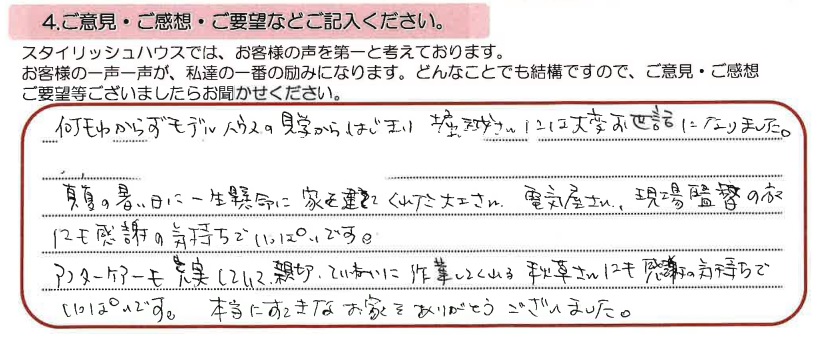 4.ご意見・ご感想・ご要望などご記入ください。
スタイリッシュハウスでは、お客様の声を第一と考えております。
お客様の一声一声が、私達の一番の励みになります。どんなことでも結構ですので、ご意見・ご感想
ご要望等ございましたらお聞かせください。
何もわからずモデルハウスの見学からはじまり 堀越さんには大変お世話になりました。
真夏の暑い日に一生懸命に 家を建ててくれた大工さん、電気屋さん、現場監督の方
にも感謝の気持ちでいっぱいです。
アフターケアーも充実していて、親切、ていねいに作業してくれる 秋草さんにも感謝の気持ちで
いっぱいです。 本当にすてきなお家をありがとうございました。